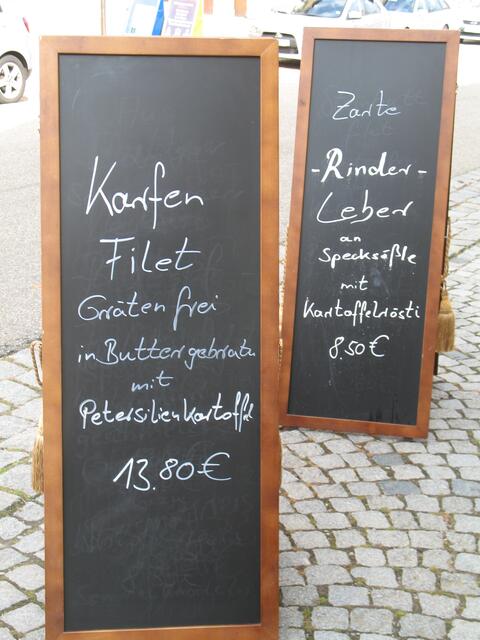 Karfen
Filet
Gräten frei
in Butter gebraten
mit
Petersilienkartoffel
13.80 €
Zarte
- Rinder -
Leber
an
Specksößle
mit
Kartoffelrösti
8.50 €